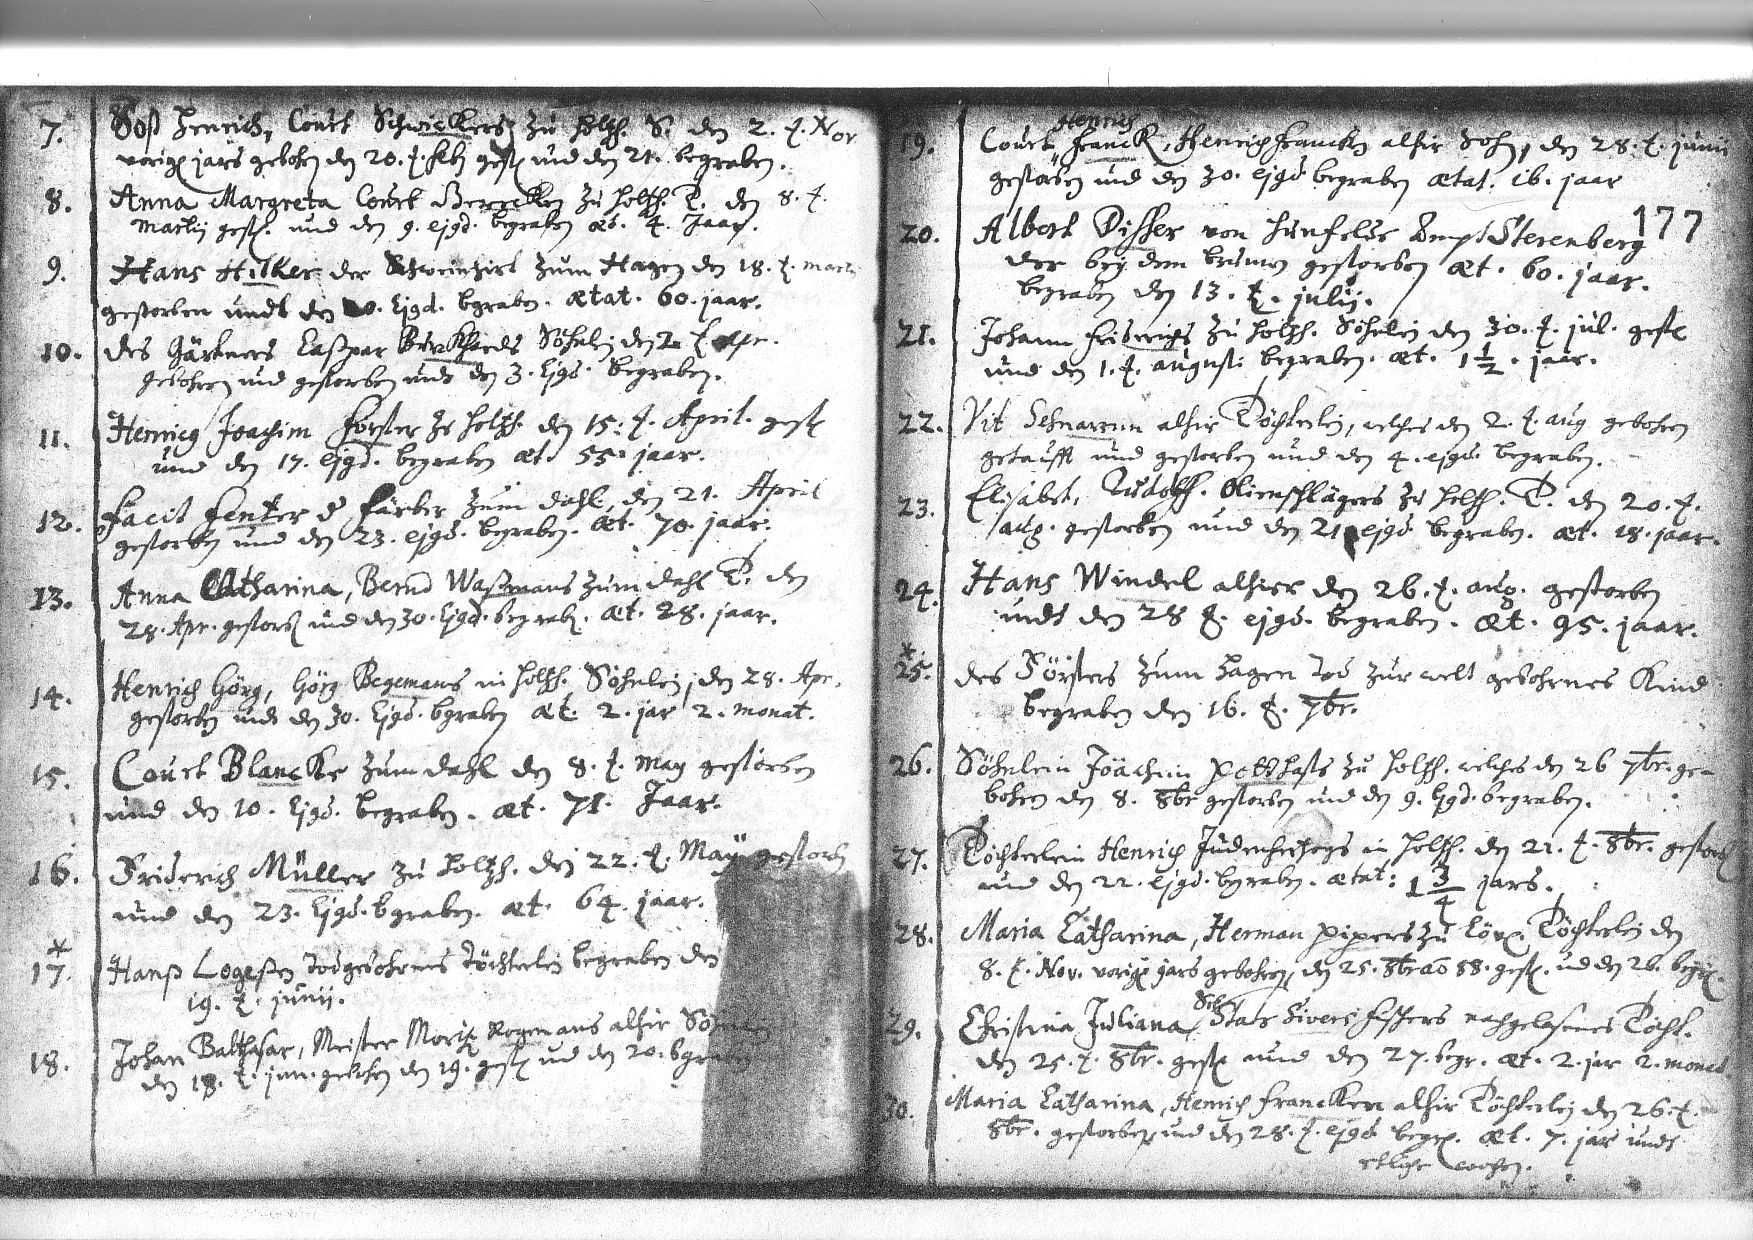 7. Jost Henrich, Court Schwickers zu Holtzh. S. den 2. t. Nov
vorigen jars gebohren den 20. t. feb gest. und den 21. begraben.
8. Anna Margreta Court zu Holtzh. T. den 8. t.
Martij gest. und den 9. ejgd. begraben æt. 4. Jaar.
9. Hans Hilker der Schweinhirt zum Hagen den 18. t. marti
gestorben undt den ejgd. bgraben. ætat. 60. jaar.
10. des Gärtners Caspar Söhnlein den 2 t apr.
gebohren und gestorben undt den 3. ejgd. begraben.
11. Henrich Joachim Forster zu Holtzh. den 15. t. April. gest
und den 17. ejgd. begraben æt. 55. jaar.
12. Färber zum dahl, den 21. April
gestorben und den 23. ejgd. begraben. æt. 70. jaar.
13. Anna Catharina, Bernd Waßmans zum dahl T. den
28. Apr. gestorb und den 30. ejgd. begrab. æt. 28. jaar.
14. Henrich Görg, Görg Begemans in Holtzh. Söhnlein, den 28. Apr.
gestorben undt den 30. ejgd. bgraben æt. 2. jar 2. monat.
15. Court Blancke zum dahl den 8. t. May gestorben
und den 10. ejgd. begraben. æt. 71. Jaar.
16. Friderich Müller zu Holtzh. den 22. t. May gestorben
und den 23. ejgd. bgraben. æt. 64. jaar.
* 17. Hanß Logeßen todgebohrnes Töchterlein begraben den
19. t. junij.
18. Johan Balthasar, Meister Moritz alhir Söhnlein
den 18. t. jun. gebohren den 19. gest und den 20. bgraben
Henrich
19. Court Franck, Henrich Francken alhir Sohn, den 28. t. junij
gestorben und den 30. ejgd begraben ætat. 16. jaar
177
20. Albert Disher von Ampt Sterenberg
der bey dem brunnen gestorben æt. 60. jaar.
begraben den 13. t. julij.
21. Johann Friderichs zu Holtzh. Söhnlein den 30. t. jul. gest
und den 1. t. august: begraben. æt. 1 1/2. jaar.
22. Vit alhir Töchterlein, welches den 2. t. aug gebohren
getaufft und gestorben und den 4. ejgd. begraben.
23. Elisabet, Rudolff. Ölienschlägers zu Holtzh. T. den 20. t.
aug. gestorben und den 21 ejgd begraben. æt. 18. jaar.
24. Hans Windel alhier den 26. t. aug. gestorben
undt den 28 t. ejgd. begraben. æt. 95. jaar.
* 25. des Försters zum Hagen tod zur welt gebohrnes Kind
begraben den 16. t. 7br.
26. Söhnlein Joachim Potthasts zu Holtzh. welches den 26 7br. ge-
bohren den 8. 8br gestorben und den 9. ejgd. begraben.
27. Töchterlein Henrich in Holtzh. den 21. t. 8br. gestorb
und den 22. ejgd. bgraben. ætat: 1 3/4 jars.
28. Maria Catharina, Herman Pipers zu Töchterlein den
8. t. Nov. vorigen jars gebohren, den 25. 8br ao 88. gest. und den 26. begr.
29. Christina Juliana, Fischers nachgelaßenes Töcht.
den 25. t. 8br. gest und den 27. begr. æt. 2. jar 2. monat.
30. Maria Catharina, Henrich Francken alhir Töchterlein den 26. t.
8br. gestorben und den 28. t. ejgd begr. æt. 7. jar undt
etliche wochen.